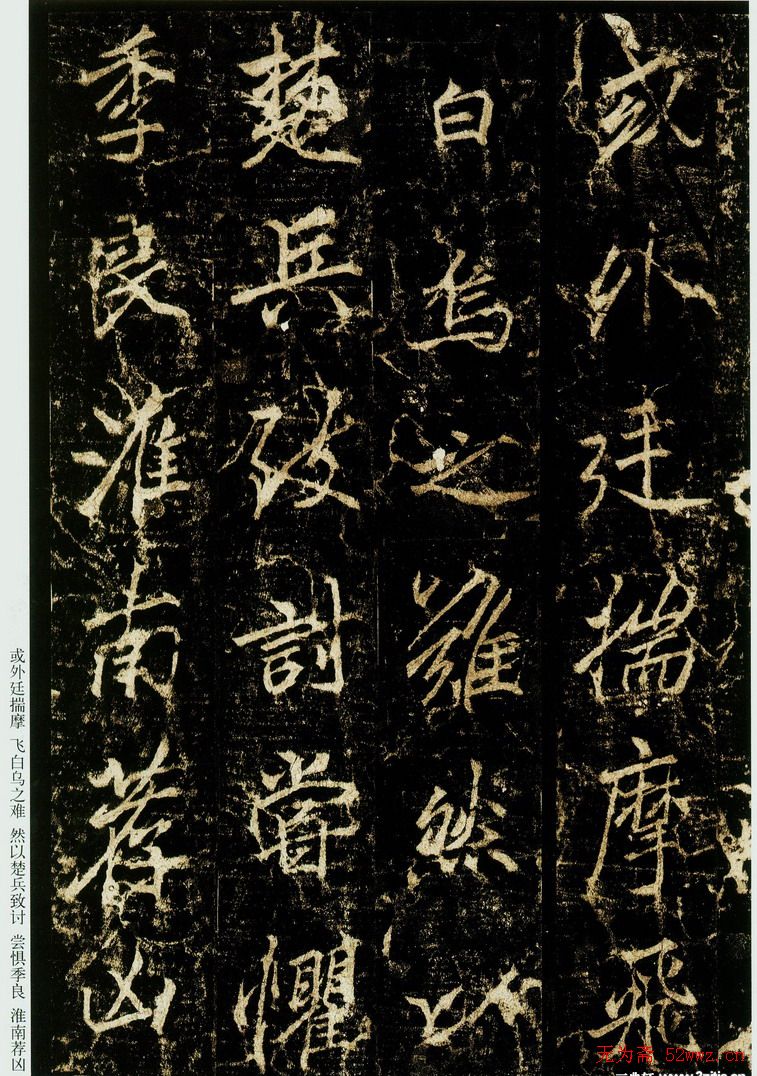 或外廷揣摩飛
白烏之難然以
楚兵致討嘗懼
季良淮南荐凶
或外廷揣摩 飞白乌之难 然以楚兵致讨 尝惧季良 淮南荐凶
无为斋 52wwz.cn